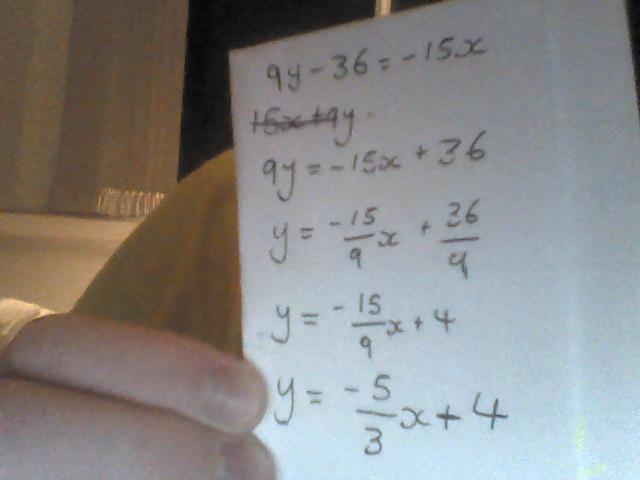 9y - 36 = -15x
15x + 9y
9y = -15x + 36
y = -15/9 x + 36/9
y = -15/9 x + 4
y = -5/3 x + 4